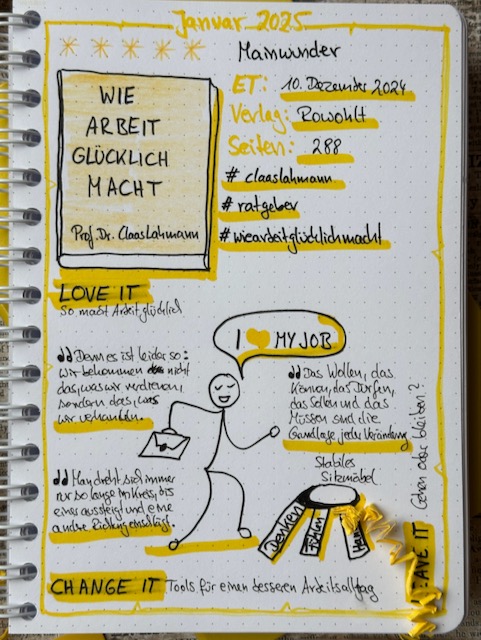 Januar 2025
Mainwunder
WIE
ARBEIT
GLÜCKLICH
MACHT
Prof. Dr. Claas Lahmann
ET: 10. Dezember 2024
Verlag: Rowohlt
Seiten: 288
# claaslahmann
# ratgeber
# wiearbeitglücklichmacht
LOVE IT
So macht Arbeit glücklich
I MY JOB
Denn es ist leider so:
wir bekommen nicht
das, was wir verdienen,
sondern das, was
wir verhandeln.
Das Wollen, das
Können, das Dürfen,
das Sollen und das
Müssen sind die
Grundlage jeder Veränderung
Man dreht sich immer
nur so lange im Kreis, bis
einer aussteigt und eine
andere Richtung einschlägt.
Stabiles
Sitzmöbel
Denken
Fühlen
Gehen oder bleiben?
LEAVE IT
CHANGE IT Tools für einen besseren Arbeitsalltag